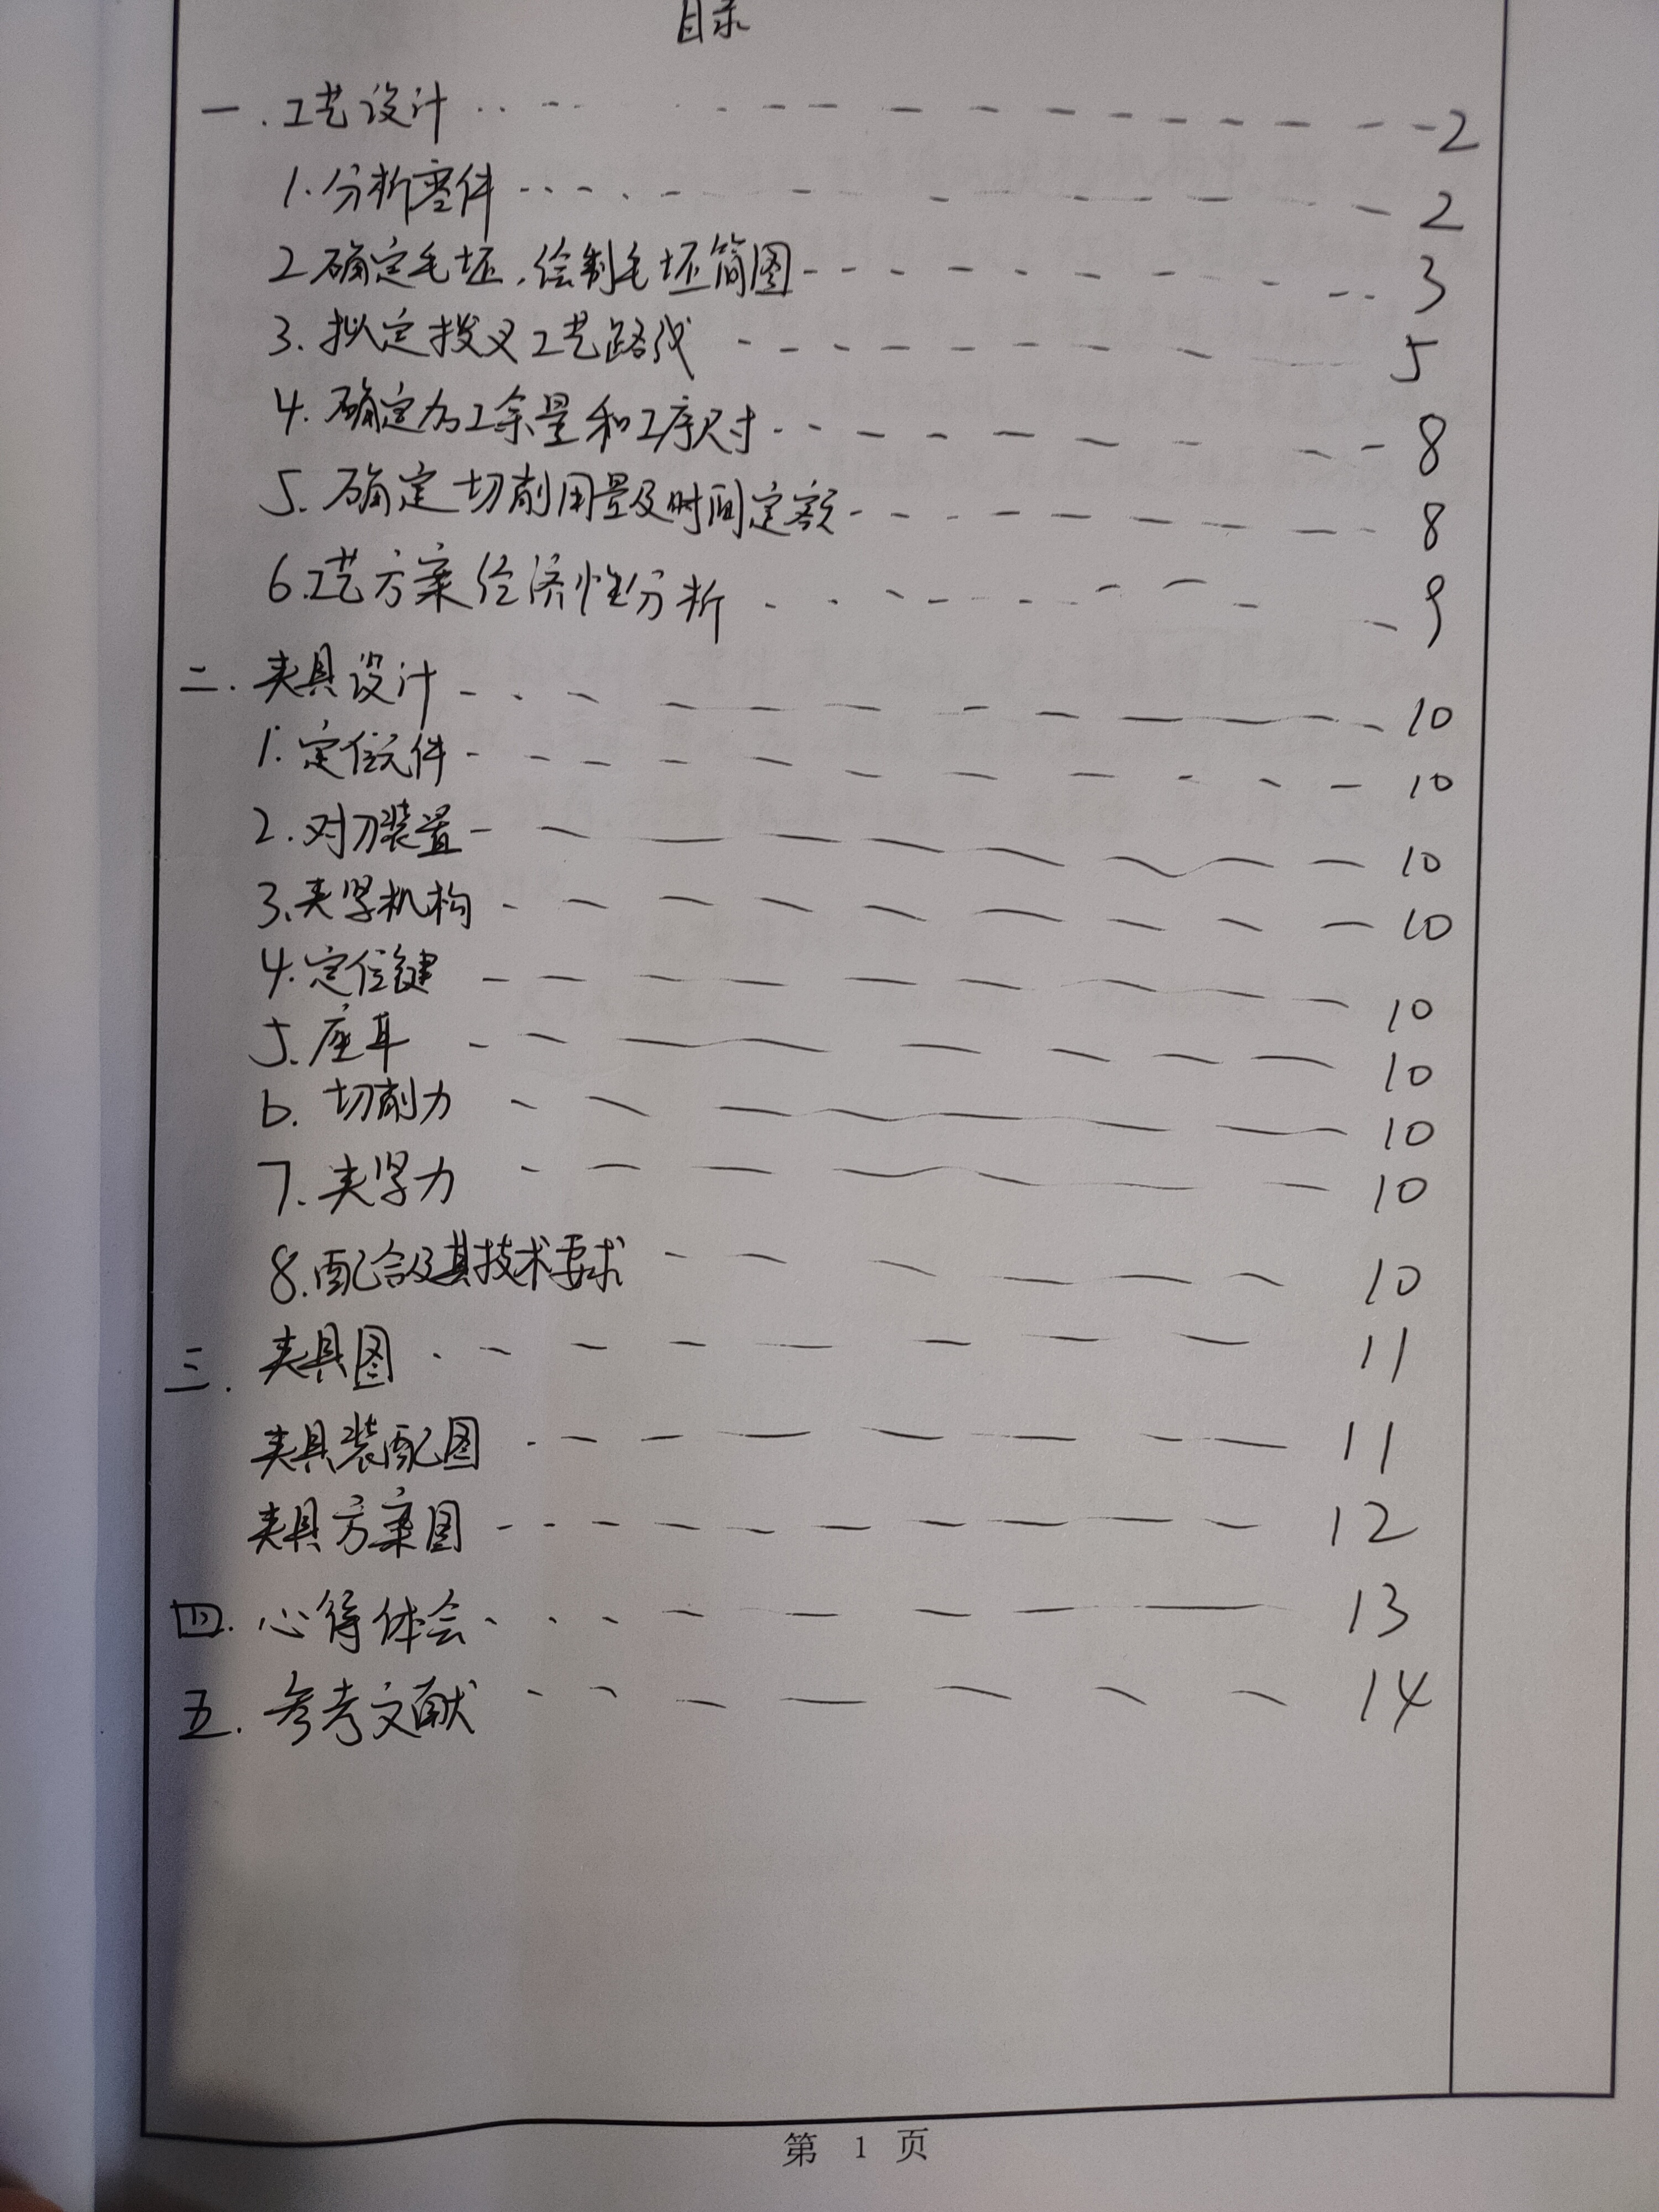 目录
一.工艺设计------2
1.分析零件------2
2.确定毛坯,绘制毛坯简图------3
3.拟定拨叉工艺路线------5
4.确定加工余量和工序尺寸------8
5.确定切削用量及时间定额------8
6.工艺方案经济性分析------9
二.夹具设计------10
1.定位元件------10
2.对刀装置------10
3.夹紧机构------10
4.定位键------10
5.座耳------10
6.切削力------10
7.夹紧力------10
8.配合及其技术要求------10
三.夹具图------11
夹具装配图------11
夹具方案图------12
四.心得体会------13
五.参考文献------14
第 1 页